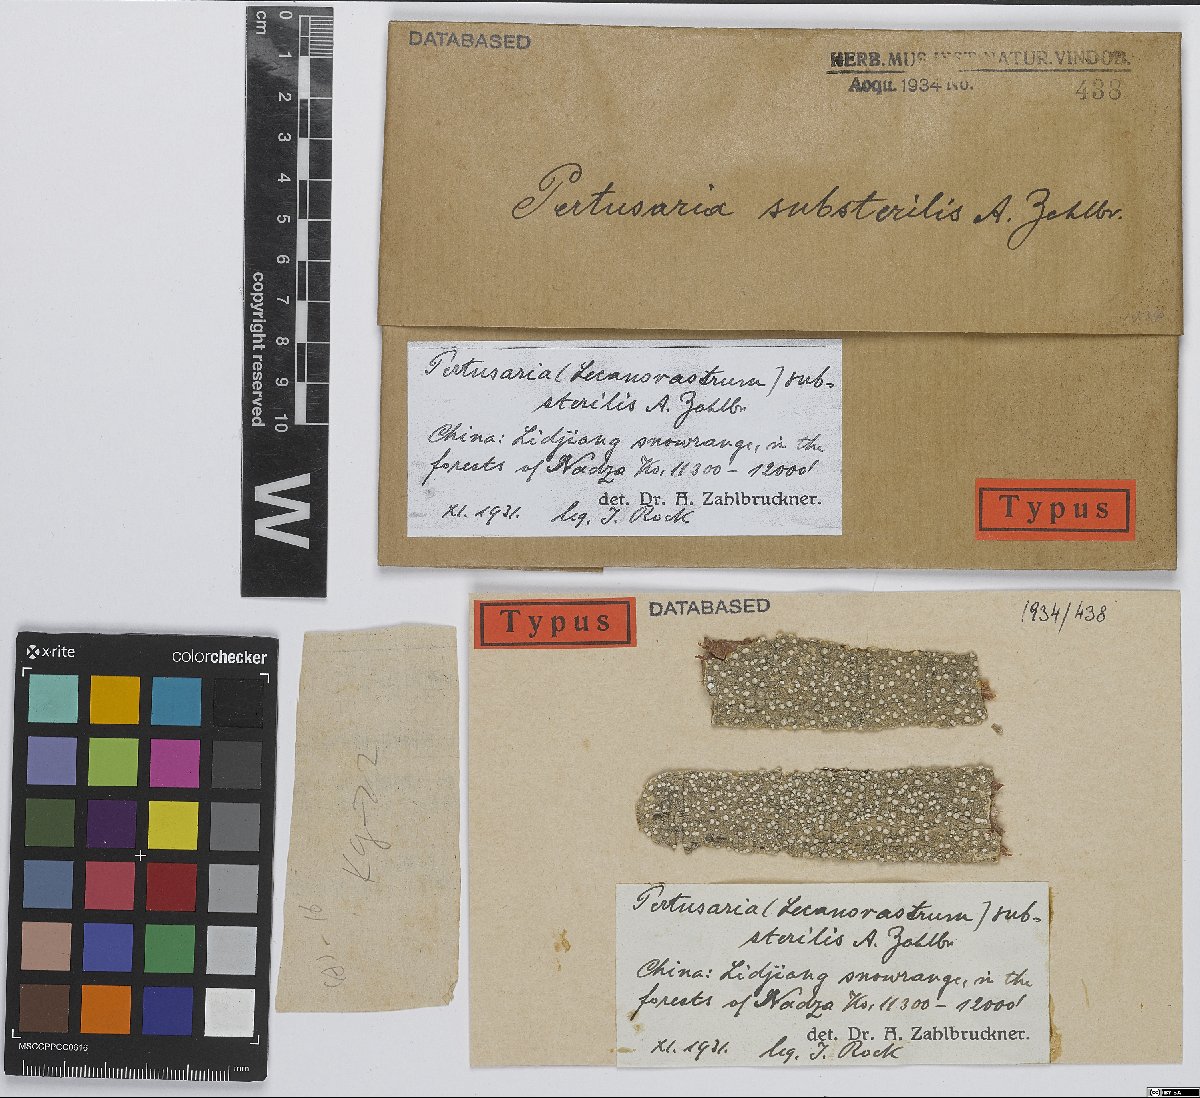 cm 0 1 2 3 4 5 6 7 8 9 10
copyright reserved
W
DATABASED
HERB. MUS. HIST. NATUR. VINDOB.
Acqu. 1934 No. 438
Pertusaria substerilis A. Zahlbr.
Pertusaria (Lecanorastrum) sub-
sterilis A. Zahlbr
China: Lidjiang snowrange, in the
forests of Nadza Ko, 11300 – 12000'
det. Dr. A. Zahlbruckner.
XI. 1931. leg. J. Rock
Typus
Typus
DATABASED
1934/438
x·rite
colorchecker
MSCCPPCC0616
mm
Pertusaria (Lecanorastrum) sub-
sterilis A. Zahlbr
China: Lidjiang snowrange, in the
forests of Nadza Ko, 11300 – 12000'
det. Dr. A. Zahlbruckner.
XI. 1931. leg. J. Rock